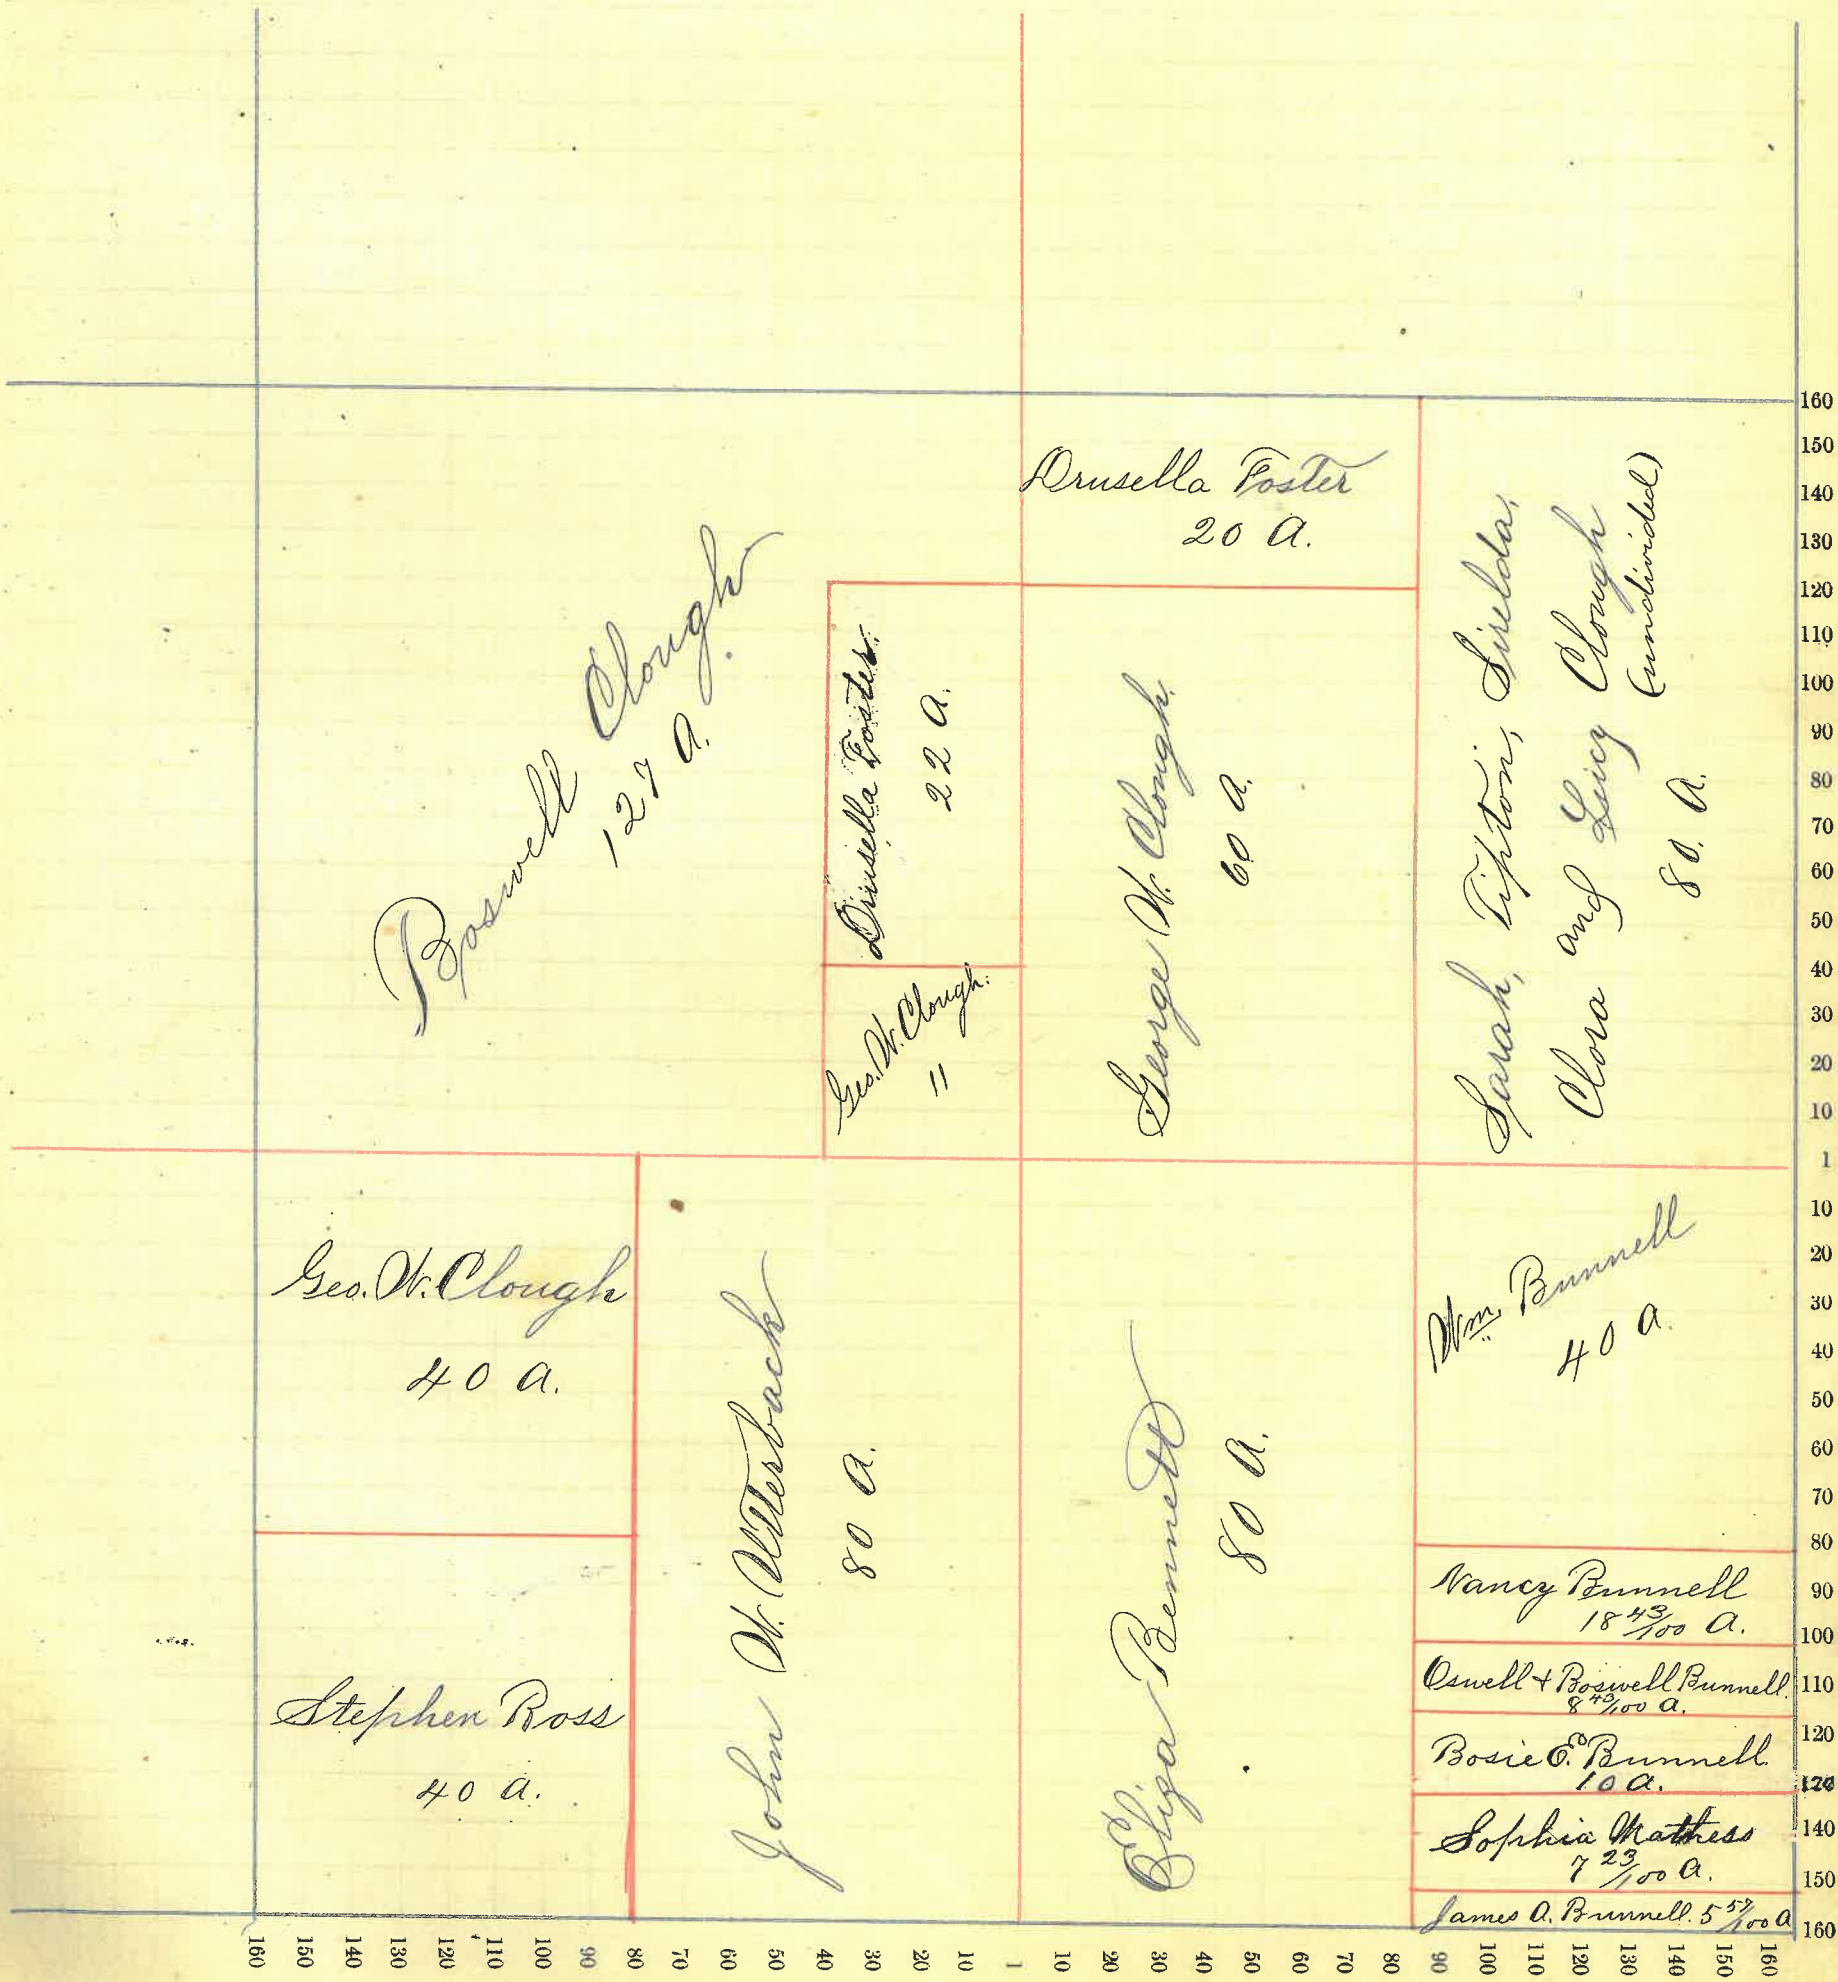 Drusella Foster
20 A.
Boswell Clough
127 A.
Drusella Foster.
22 A.
Geo. W. Clough.
11
George W. Clough.
60 A.
Sarah, Tipton, Sirelda,
Clora and Lucy Clough
(undivided)
80. A.
Geo. W. Clough
40 A.
Stephen Ross
40 A.
John W. Utterback
80 A.
Eliza Bennett
80 A.
Wm. Bunnell
40 A.
Nancy Bunnell
18 43/100 A.
Oswell & Boswell Bunnell.
8 43/100 A.
Bosie E. Bunnell.
10 A.
Sophia Mathess
7 23/100 A.
James A. Bunnell. 5 57/100 A
160
150
140
130
120
110
100
90
80
70
60
50
40
30
20
10
1
10
20
30
40
50
60
70
80
90
100
110
120
140
150
160
160 150 140 130 120 110 100 90 80 70 60 50 40 30 20 10 1 10 20 30 40 50 60 70 80 90 100 110 120 130 140 150 160